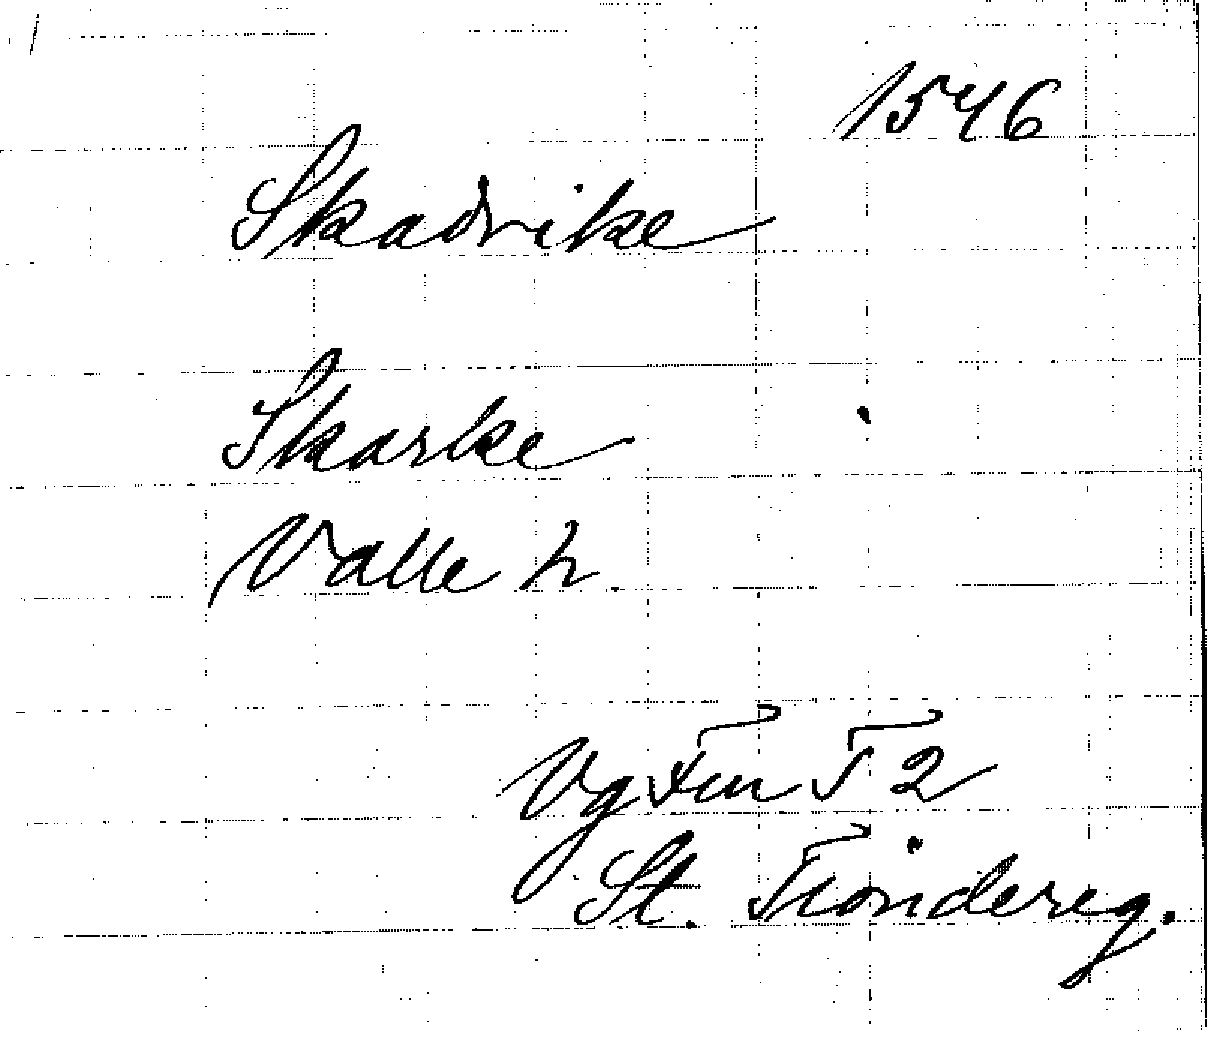 1546
Skadvike
Skarke
Valle h.
Vg Fm T 2
St. Tiondereg.